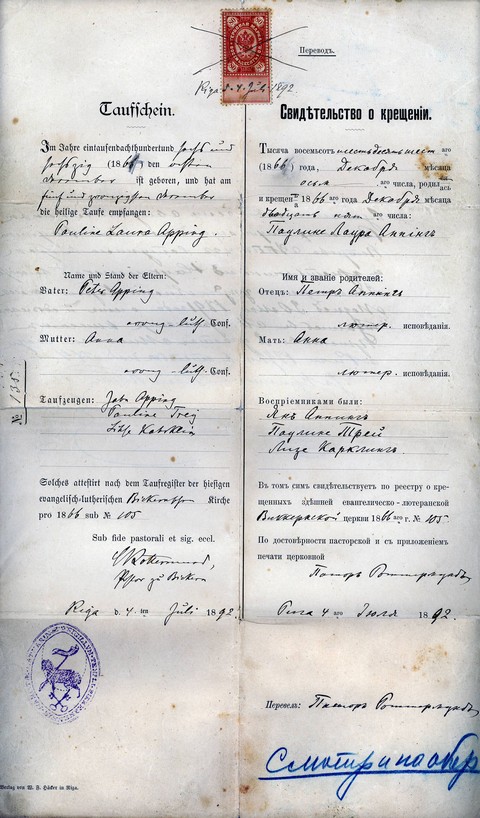 Riga d. 4. Juli 1892.
Taufschein.
Im Jahre eintausendachthundertund sechs und
sechszig (1866) den achten
December ist geboren, und hat am
fünf und zwanzigsten December
die heilige Taufe empfangen:
Pauline Laura Apping.
Name und Stand der Eltern:
Vater: Peter Apping
evang-luth Conf.
Mutter: Anna
evang-luth. Conf.
Taufzeugen: Jahn Apping
Pauline Trey
Lihse
№ 135.
Solches attestirt nach dem Taufregister der hiesigen
evangelisch-lutherischen Kirche
pro 1866 sub № 105
Sub fide pastorali et sig. eccl.
Pastor zu Bickern
Riga d. 4 ten Juli 1892.
Verlag von W. F. Häcker in Riga.
Переводъ.
Свидѣтельство о крещеніи.
Тысяча восемьсотъ шестьдесятъ шест аго
(1866) года, Декабря мѣсяца
осьм аго числа, родил ась
и крещен а 1866 аго года Декабря мѣсяца
двадцать пят аго числа:
Паулине Лаура Аппингъ
Имя и званіе родителей:
Отецъ: Петръ Аппингъ
лютер. исповѣданія.
Мать: Анна
лютер. исповѣданія.
Воспріемниками были:
Янъ Аппингъ
Паулине Трей
Лизе Карклингъ.
Въ томъ симъ свидѣтельствуетъ по реестру о кре-
щенныхъ здѣшней евангелическо-лютеранской
Биккернской церкви 1866 аго г. № 105.
По достовѣрности пасторской и съ приложеніемъ
печати церковной
Пасторъ
Рига 4 аго Іюля 1892.
Перевелъ: Пасторъ
Смотри на обор